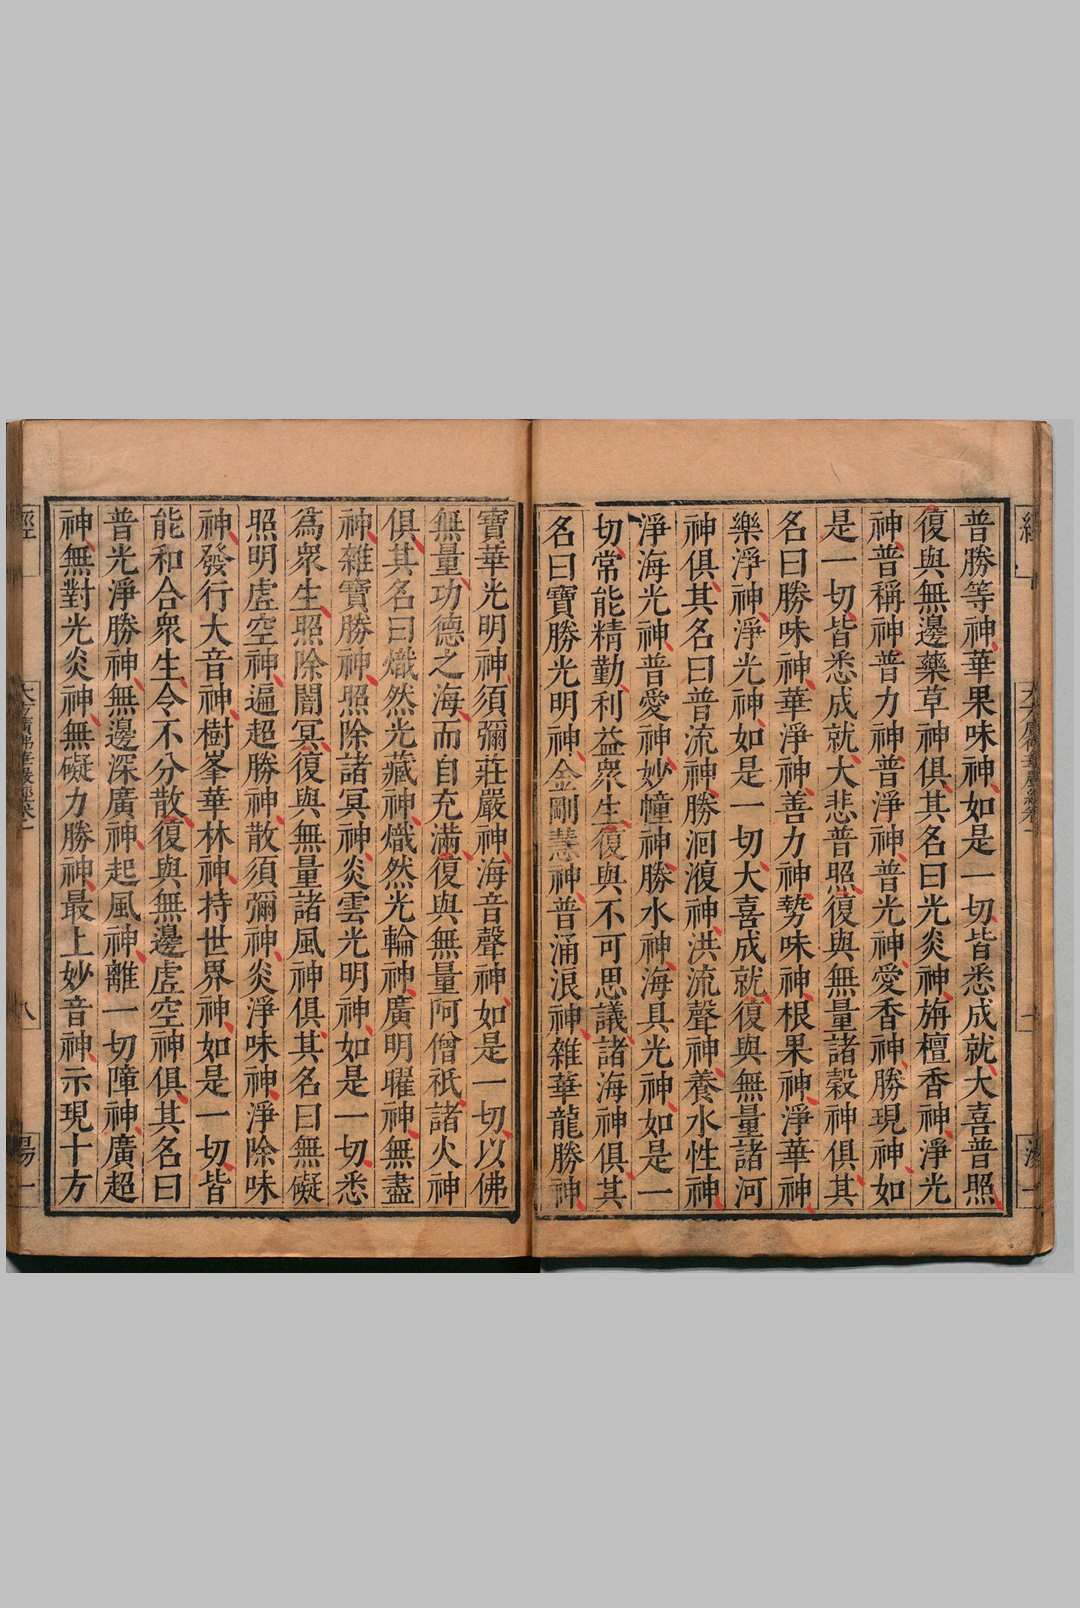 普勝等神華果味神如是一切皆悉成就大喜普照
復與無邊藥草神俱其名曰光炎神旃檀香神淨光
神普稱神普力神普淨神普光神愛香神勝現神如
是一切皆悉成就大悲普照復與無量諸穀神俱其
名曰勝味神華淨神善力神勢味神根果神淨華神
樂淨神淨光神如是一切大喜成就復與無量諸河
神俱其名曰普流神勝洄澓神洪流聲神養水性神
淨海光神普愛神妙幢神勝水神海具光神如是一
切常能精勤利益衆生復與不可思議諸海神俱其
名曰寶勝光明神金剛慧神普涌浪神雜華龍勝神
寶華光明神須彌莊嚴神海音聲神如是一切以佛
無量功德之海而自充滿復與無量阿僧祇諸火神
俱其名曰熾然光藏神熾然光輪神廣明曜神無盡
神雜寶勝神照除諸冥神炎雲光明神如是一切悉
爲衆生照除闇冥復與無量諸風神俱其名曰無礙
照明虛空神遍超勝神散須彌神炎淨味神淨除味
神發行大音神樹峯華林神持世界神如是一切皆
能和合衆生令不分散復與無邊虛空神俱其名曰
普光淨勝神無邊深廣神起風神離一切障神廣超
神無對光炎神無礙力勝神最上妙音神示現十方
經 大方廣佛華嚴經卷一 八 湯一